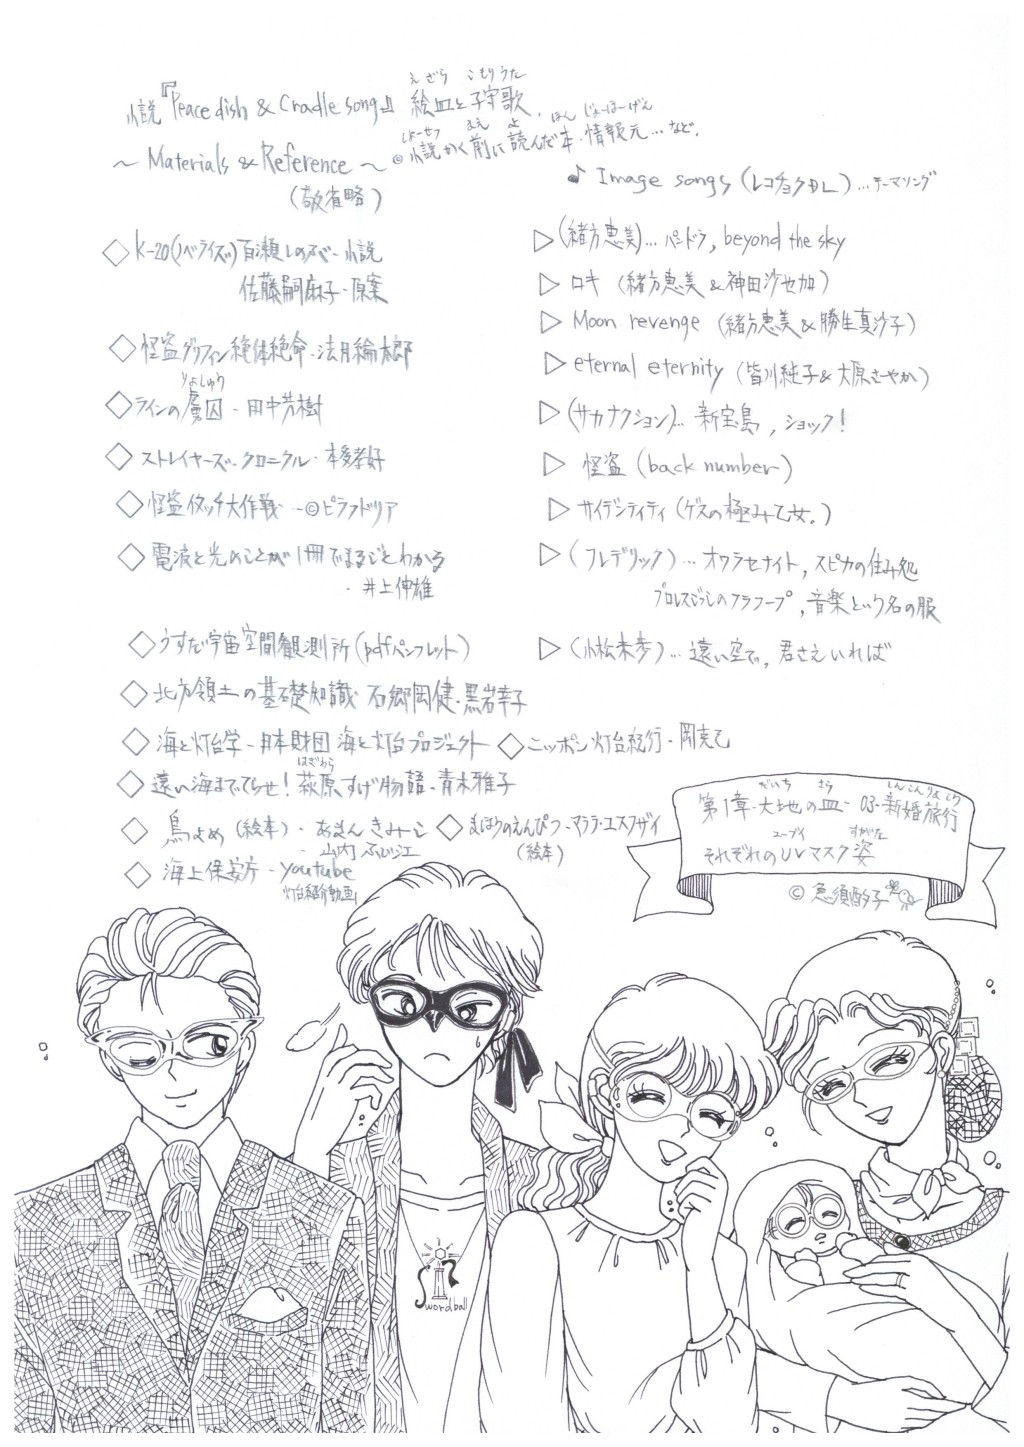 えざら こもりうた
小説『Peace dish & Cradle song』 絵皿と子守歌.
しょーせつ まえ よ ほん じょーほーげん
~ Materials & Reference ~ ◎小説かく前に読んだ本・情報元…など.
(敬省略)
♪ Image songs (レコチョクDL) …テーマソング
◇ K-20(ノベライズ) 百瀬しのぶ- 小説
佐藤嗣麻子-原案
◇ 怪盗グリフィン絶体絶命-法月綸太郎
りょしゅう
◇ ラインの虜囚 - 田中芳樹
◇ ストレイヤーズ・クロニクル・本多孝好
◇ 怪盗イタッチ大作戦 -©ピラフドリア
◇ 電波と光のことが1冊でまるごとわかる
・井上伸雄
◇ うすだ宇宙空間観測所(pdfパンフレット)
◇ 北方領土の基礎知識・石郷岡健・黒岩幸子
◇ 海と灯台学-日本財団 海と灯台プロジェクト ◇ ニッポン灯台紀行-岡克己
はぎわら
◇ 遠い海までてらせ!萩原すげ物語-青木雅子
◇ 鳥よめ (絵本) - あまんきみこ ◇ まほうのえんぴつ-マララ・ユスフザイ
- 山内ふじ江 (絵本)
◇ 海上保安庁 - youtube
灯台紹介動画
▷ (緒方恵美)… パンドラ, beyond the sky
▷ ロキ (緒方恵美&神田沙也加)
▷ Moon revenge (緒方恵美&勝生真沙子)
▷ eternal eternity (皆川純子&大原さやか)
▷ (サカナクション)… 新宝島, ショック!
▷ 怪盗 (back number)
▷ サイデンティティ (ゲスの極み乙女。)
▷ (フレデリック) … オワラセナイト, スピカの住み処
プロレスごっこのフラフープ, 音楽という名の服
▷ (小松未歩)… 遠い空で, 君さえいれば
だいち さら しんこんりょこう
第1章-大地の皿- 03-新婚旅行
ユーブイ すがた
それぞれのUVマスク姿
© 急須酌子
Swordball